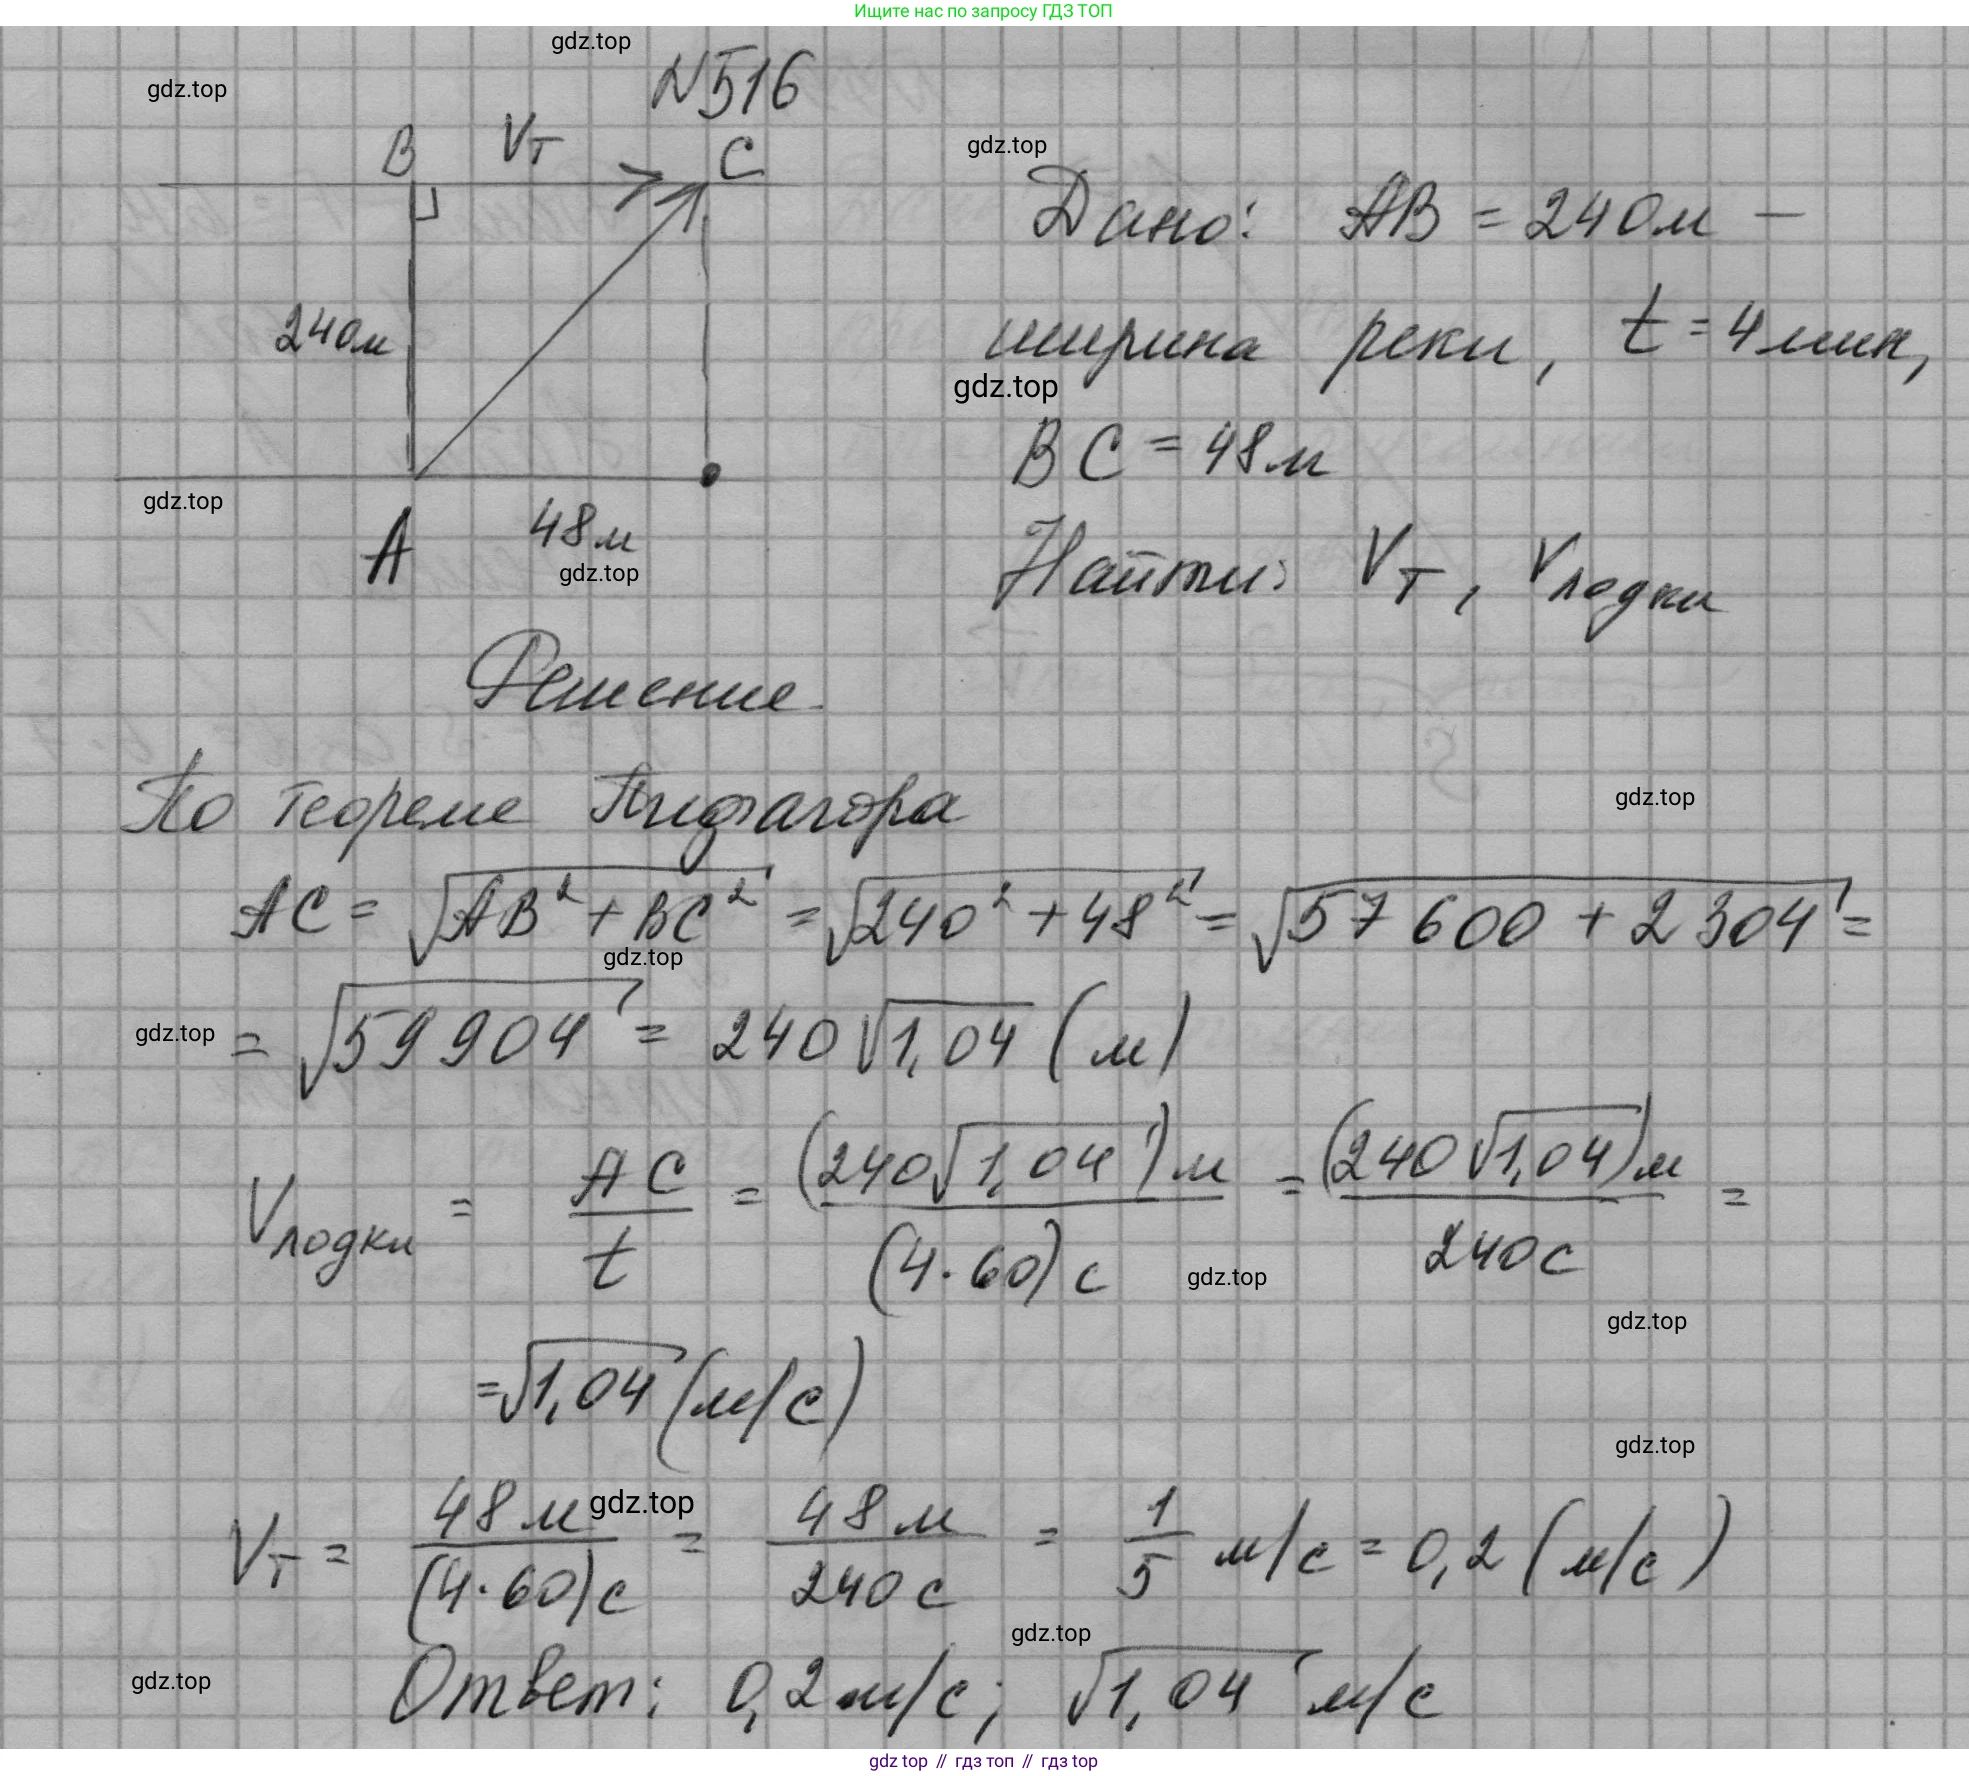 Ищите нас по запросу ГДЗ ТОП
gdz.top
N516
gdz.top
B Vт C
gdz.top
Дано: AB = 240м —
240м
ширина реки, t = 4 мин,
gdz.top
BC = 48м
gdz.top
A 48м
gdz.top
Найти: Vт, Vлодки
Решение
По теореме Пифагора
gdz.top
AC = √(AB² + BC²) = √(240² + 48²) = √(57 600 + 2 304) =
gdz.top
= √59 904 = 240√1,04 (м)
gdz.top
Vлодки = AC/t = (240√1,04)м/(4·60)с = (240√1,04)м/240с =
gdz.top
gdz.top
= √1,04 (м/с)
gdz.top
Vт = 48м/(4·60)с = 48м/240с = 1/5 м/с = 0,2 (м/с)
gdz.top
gdz.top
Ответ: 0,2 м/с; √1,04 м/с
gdz.top
gdz top // гдз топ // гдз top